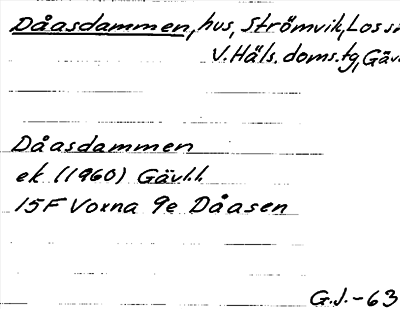 Dåasdammen, hus, Strömvik, Los s
V. Häls. doms. tg, Gäv
Dåasdammen
ek (1960) Gävl.l.
15F Voxna 9e Dåasen
G.J.-63